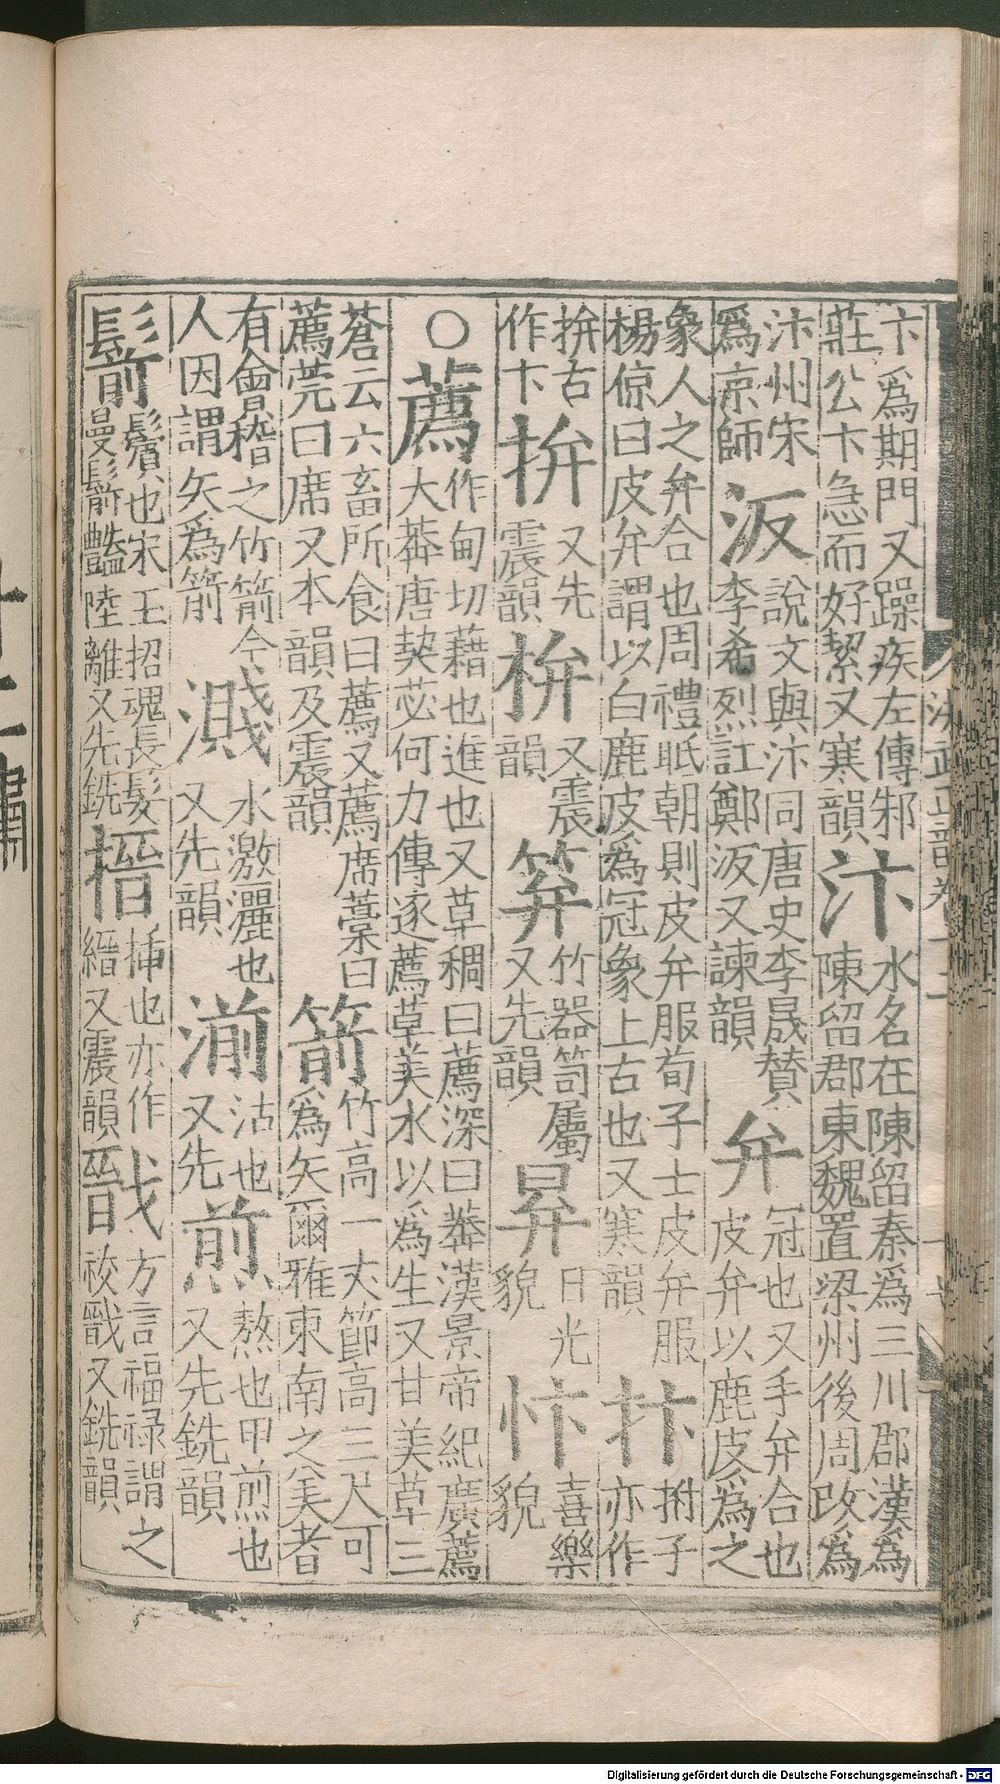 卞爲期門又躁疾左傳邾
莊公卞急而好絜又寒韻
汴
水名在陳留秦爲三川郡漢爲
陳留郡東魏置梁州後周改爲
汴州宋
爲京師
汳
說文與汴同唐史李晟賛
李希烈訌鄭汳又諫韻
弁
冠也又手弁合也
皮弁以鹿皮爲之
象人之弁合也周禮眂朝則皮弁服荀子士皮弁服
楊倞曰皮弁謂以白鹿皮爲冠象上古也又寒韻
抃
拊子
亦作
拚古
作卞
拚
又先
震韻
枿
又震
韻
笲
竹器笥屬
又先韻
昪
日光
貌
忭
喜樂
貌
○薦
作甸切藉也進也又草稠曰薦深曰莽漢景帝紀廣薦
大莽唐契苾何力傳逐薦草美水以爲生又甘美草三
蒼云六畜所食曰薦又薦席藁曰
薦莞曰席又本韻及震韻
箭
竹高一丈節高三尺可
爲矢爾雅東南之美者
有會稽之竹箭今
人因謂矢爲箭
濺
水激灑也
又先韻
湔
沾也
又先
煎
熬也甲煎也
又先銑韻
鬋
鬢也宋玉招魂長髮
曼鬋豔陸離又先銑
搢
揷也亦作
縉又震韻
戬
方言福禄謂之
祓戩又銑韻
洪武正韻卷十一
Digitalisierung gefördert durch die Deutsche Forschungsgemeinschaft - DFG